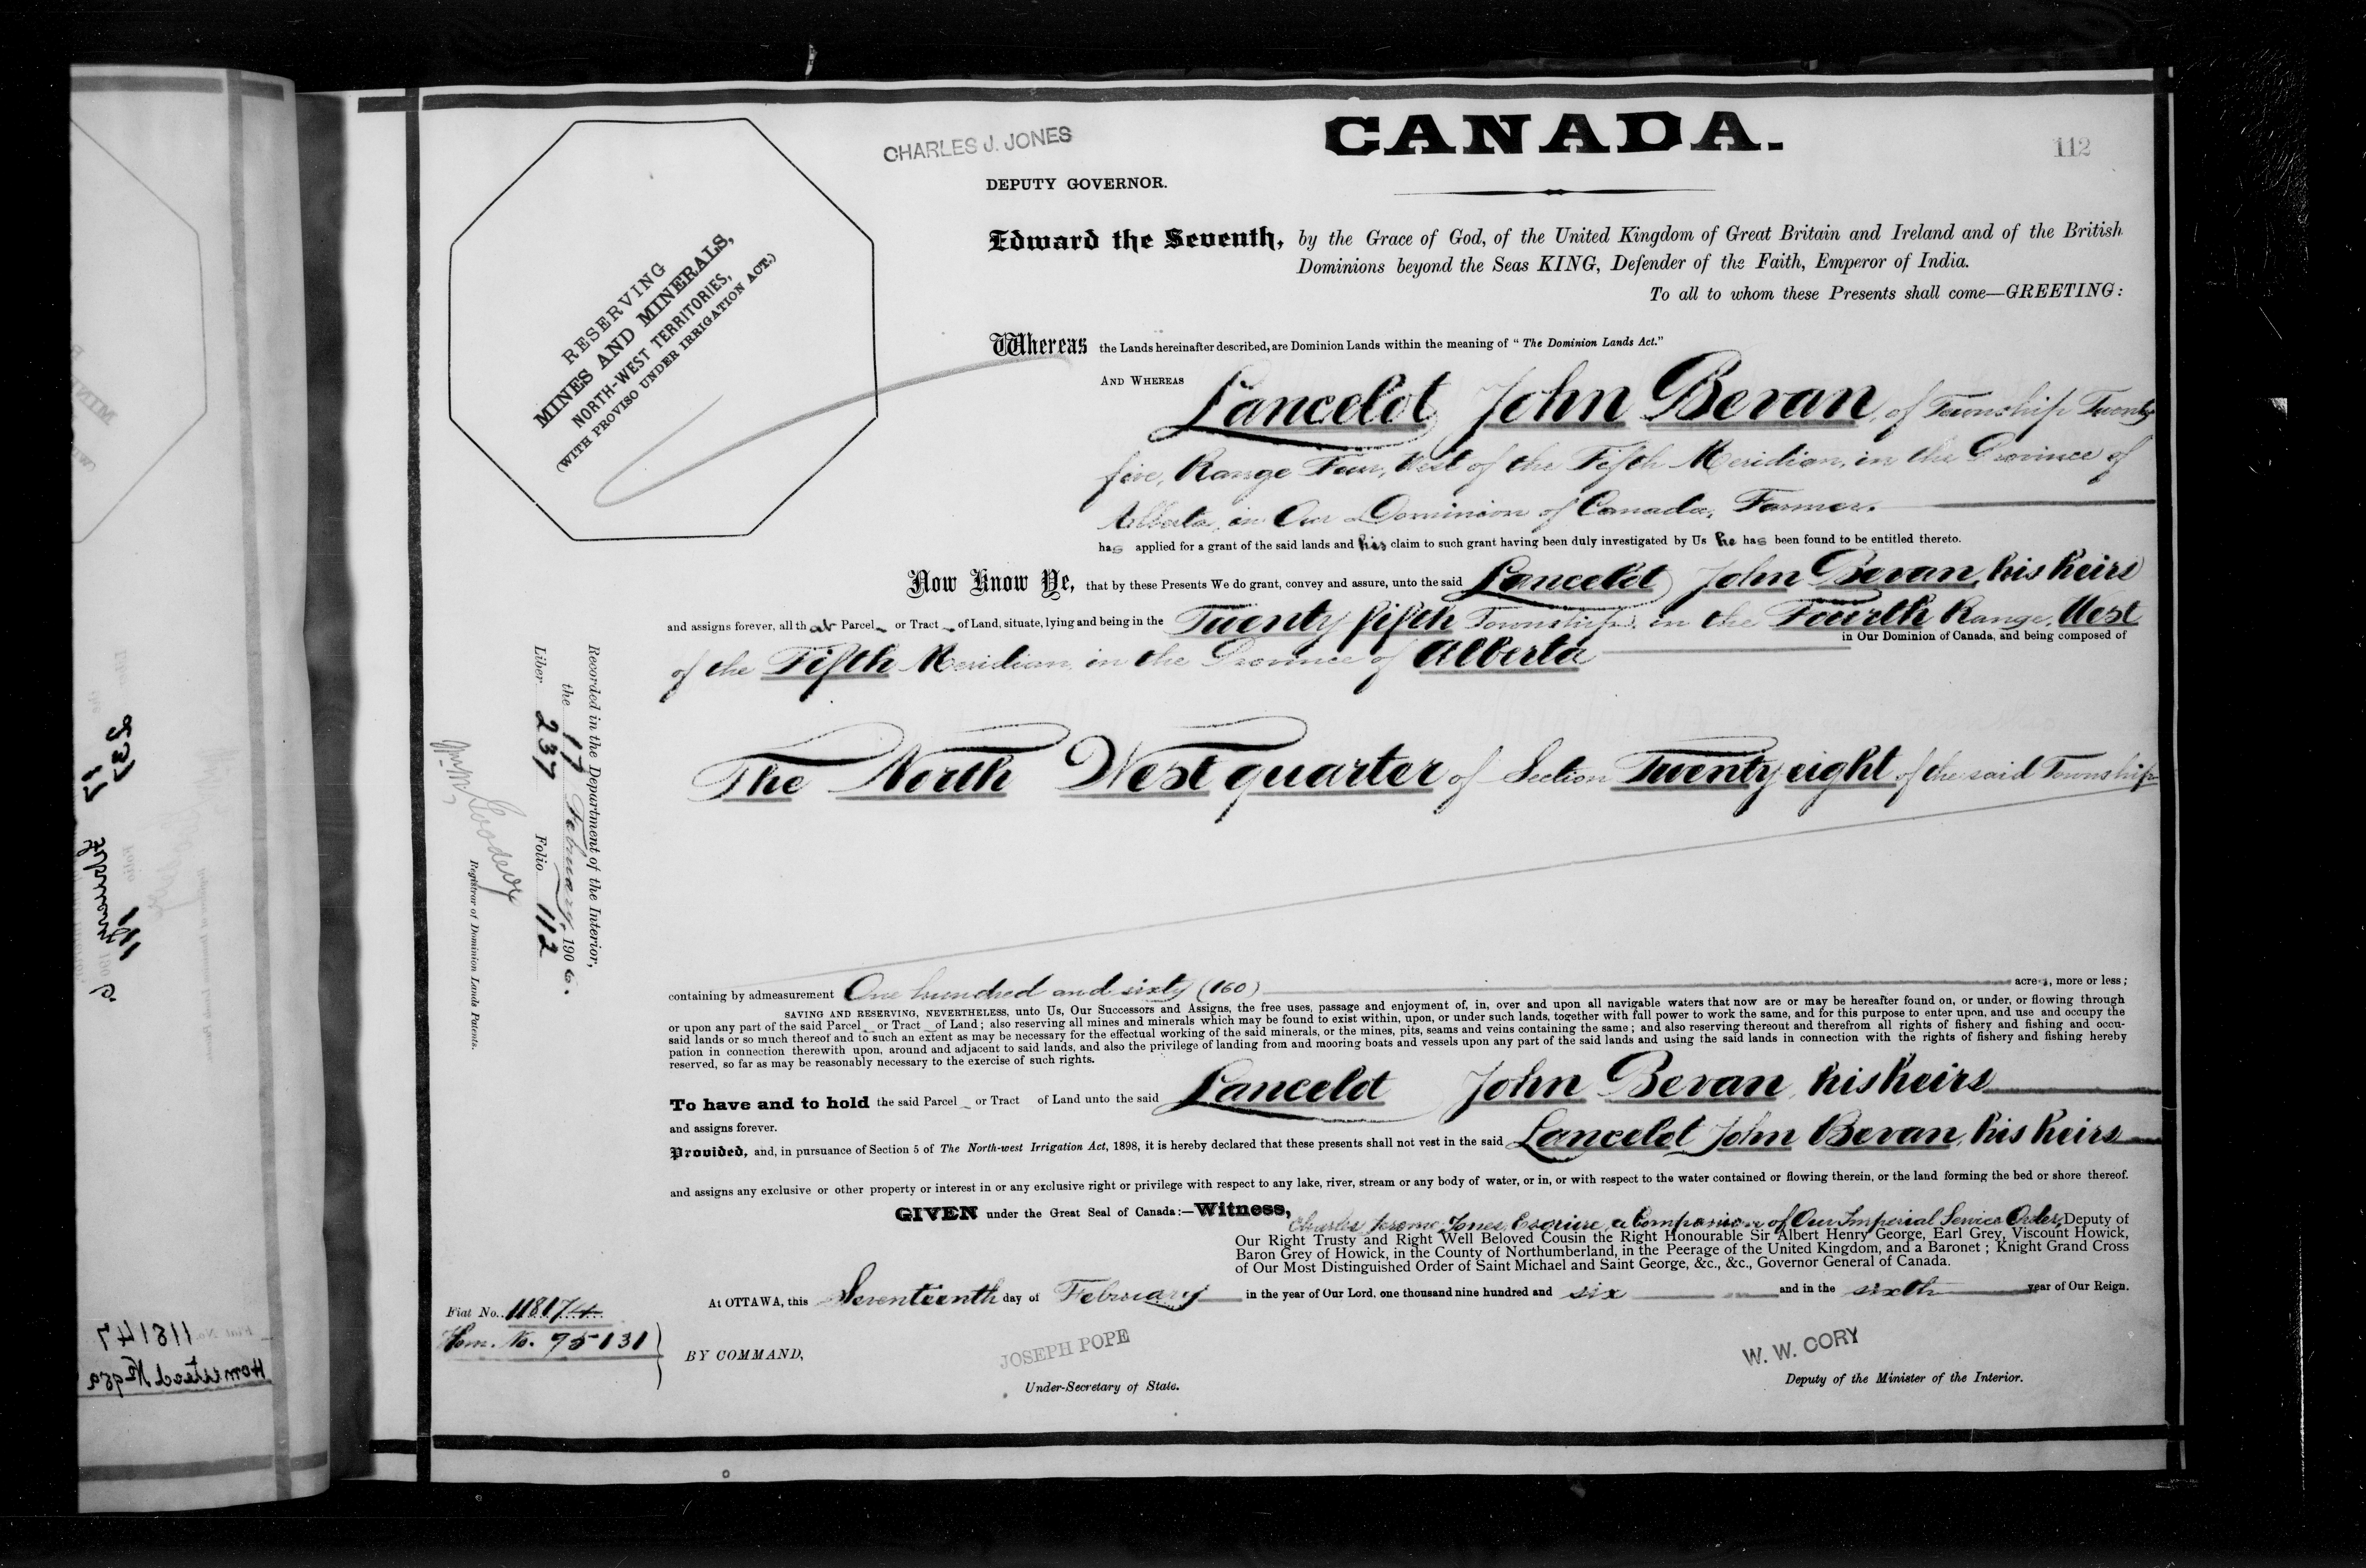 CHARLES J. JONES
DEPUTY GOVERNOR.
CANADA.
112
RESERVING
MINES AND MINERALS,
NORTH-WEST TERRITORIES,
(WITH PROVISO UNDER IRRIGATION ACT.)
Edward the Seventh, by the Grace of God, of the United Kingdom of Great Britain and Ireland and of the British
Dominions beyond the Seas KING, Defender of the Faith, Emperor of India.
To all to whom these Presents shall come—GREETING:
Whereas the Lands hereinafter described, are Dominion Lands within the meaning of "The Dominion Lands Act."
AND WHEREAS Lancelot John Bevan, of Township Twenty
five, Range Four, West of the Fifth Meridian, in the Province of
Alberta, in Our Dominion of Canada, Farmer.
has applied for a grant of the said lands and his claim to such grant having been duly investigated by Us he has been found to be entitled thereto.
Now Know Ye, that by these Presents We do grant, convey and assure, unto the said Lancelot John Bevan, his heirs
and assigns forever, all that Parcel or Tract of Land, situate, lying and being in the Twenty fifth Township, in the Fourth Range, West
of the Fifth Meridian, in the Province of Alberta in Our Dominion of Canada, and being composed of
The North West quarter of Section Twenty eight of the said Township
containing by admeasurement One hundred and sixty (160) acres, more or less;
SAVING AND RESERVING, NEVERTHELESS, unto Us, Our Successors and Assigns, the free uses, passage and enjoyment of, in, over and upon all navigable waters that now are or may be hereafter found on, or under, or flowing through
or upon any part of the said Parcel or Tract of Land; also reserving all mines and minerals which may be found to exist within, upon, or under such lands, together with full power to work the same, and for this purpose to enter upon, and use and occupy the
said lands or so much thereof and to such an extent as may be necessary for the effectual working of the said minerals, or the mines, pits, seams and veins containing the same; and also reserving thereout and therefrom all rights of fishery and fishing and occu-
pation in connection therewith upon, around and adjacent to said lands, and also the privilege of landing from and mooring boats and vessels upon any part of the said lands and using the said lands in connection with the rights of fishery and fishing hereby
reserved, so far as may be reasonably necessary to the exercise of such rights.
To have and to hold the said Parcel or Tract of Land unto the said Lancelot John Bevan, his heirs
and assigns forever.
Provided, and, in pursuance of Section 5 of The North-west Irrigation Act, 1898, it is hereby declared that these presents shall not vest in the said Lancelot John Bevan, his heirs
and assigns any exclusive or other property or interest in or any exclusive right or privilege with respect to any lake, river, stream or any body of water, or in, or with respect to the water contained or flowing therein, or the land forming the bed or shore thereof.
GIVEN under the Great Seal of Canada:—Witness, Charles Jerome Jones, Esquire, a Companion of Our Imperial Service Order, Deputy of
Our Right Trusty and Right Well Beloved Cousin the Right Honourable Sir Albert Henry George, Earl Grey, Viscount Howick,
Baron Grey of Howick, in the County of Northumberland, in the Peerage of the United Kingdom, and a Baronet; Knight Grand Cross
of Our Most Distinguished Order of Saint Michael and Saint George, &c., &c., Governor General of Canada.
At OTTAWA, this Seventeenth day of February in the year of Our Lord, one thousand nine hundred and six and in the sixth year of Our Reign.
BY COMMAND,
JOSEPH POPE
Under-Secretary of State.
W. W. CORY
Deputy of the Minister of the Interior.
Recorded in the Department of the Interior,
the 17 February, 1906.
Liber 237 Folio 112
Wm. M. Goodeve
Registrar of Dominion Lands Patents.
Fiat No. 118174
Hom. No. 75131
237
February
Fiat No. 118147
Homestead No